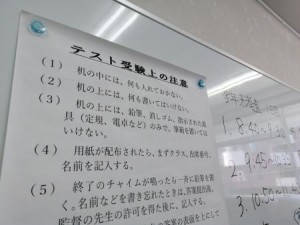 テスト受験上の注意
(1) 机の中には、何も入れておかない。
(2) 机の上には、何も書いてはいけない。
(3) 机の上には、鉛筆、消しゴム、指示された道
具(定規、電卓など)のみで、筆箱を置いては
いけない。
(4) 用紙が配布されたら、まずクラス、出席番号、
名前を記入する。
(5) 終了のチャイムが鳴ったら一斉に鉛筆を置
く。名前などを書き忘れたときは、答案提出後、
監督の先生の許可を得た後に、記入する。
の表面を上にして
1. 8:45~
2. 9:45~10:35
3. 10:50~